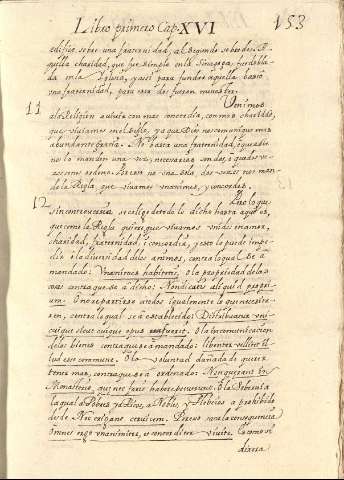 Libro primero Cap. XVI 153
edificò, sobre una fraternidad, al Segundo sobre dos.
aquella charidad, que fue simple en la Sinagoga, fue dobla
da en la Iglesia, y assi para fundar aquella bastò
una fraternidad, para esta dos fueron menester.
11 Venimos
a la Religión a vivir con mas concordia, con mas charidad,
que viviamos en el siglo, ya que Dios nos comunique mas
abundante gracia. No basta una fraternidad, que a Dios
nos lo manden una vez; necessarias son dos,
nos ordena. No una sola, dos vezes nos man
da la Regla que vivamos unanimes, y concordes.
12 Pero lo que
sin controversia se colige de todo lo dicho hasta aqui es,
que como la Regla quiere que vivamos unidos en amor,
charidad, fraternidad, i concordia, y esto lo puede impe
dir o la diversidad de los animos, contra lo qual està
mandado: Unanimes habitetis, O la propriedad de las
cosas contra que se a dicho: Non dicatis aliquid propri
um. O no repartirse a todos igualmente lo que necessita
ren, contra lo qual se à establecido: Distribuatur uni
cuique sicut cuique opus fuerit. O la incomunicacion
de los bienes contra que se à mandado: libenter velitis il
lud esse commune. O la voluntad dañada de querer
tener mas, contra que se à ordenado: Non quærant in
Monasterio, quæ nec foris habere potuerunt. O la sobervia
la qual a Pobres, ya Ricos, a Nobles, y Plebeios a prohibido
desde Nec erigant cervicem. Pareus saca la consequencia
Omnes ergo unanimiter, et concorditer vivite. Como si
dixera